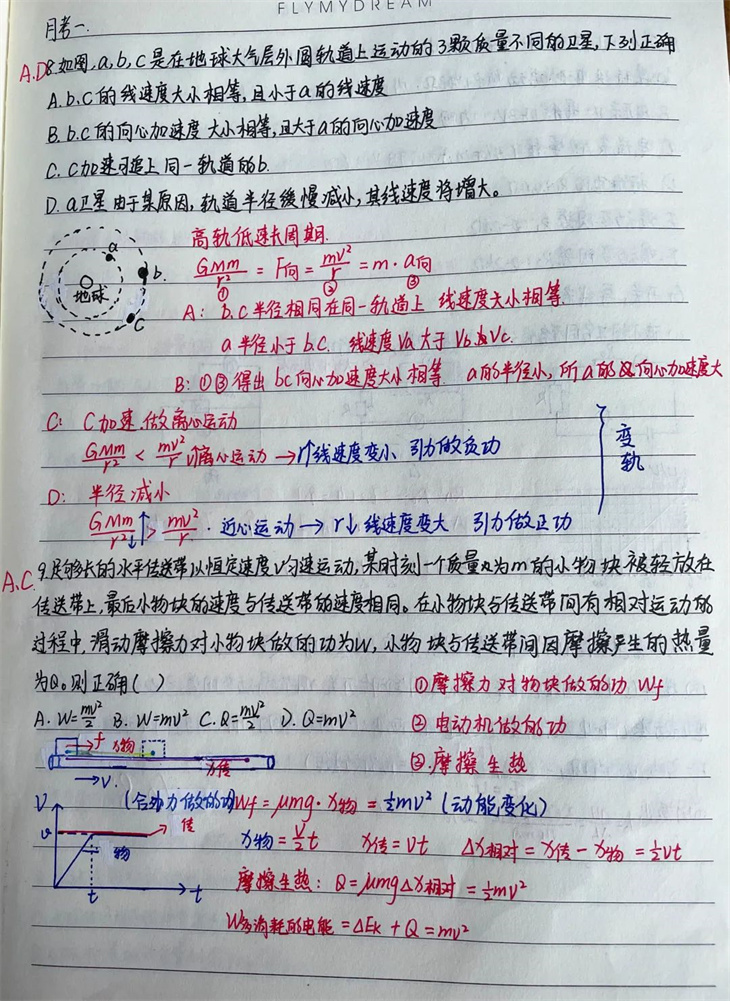 FLYMYDREAM
月考一.
A.D 8.如图,a,b,c是在地球大气层外圆轨道上运动的3颗质量不同的卫星,下列正确
A.b.c的线速度大小相等,且小于a的线速度
B.b.c的向心加速度大小相等,且大于a的向心加速度
C.c加速可追上同一轨道的b.
D.a卫星由于某原因,轨道半径缓慢减小,其线速度将增大。
a
b.
c
地球
高轨低速长周期.
GMm/r² = F向 = mv²/r = m·a向
① ② ③
A: b.c半径相同在同一轨道上 线速度大小相等.
a半径小于b.c. 线速度Va大于Vb Vc.
B: ①③得出bc向心加速度大小相等. a的半径小,所a的向心加速度大
C: C加速.做离心运动
GMm/r² < mv²/r 离心运动 → r↑线速度变小 引力做负功
D: 半径减小
GMm/r²↓ ↑ > mv²/r . 近心运动 → r↓ 线速度变大 引力做正功
变轨
A.C. 9.足够长的水平传送带以恒定速度V匀速运动,某时刻一个质量为m的小物块被轻放在
传送带上,最后小物块的速度与传送带的速度相同。在小物块与传送带间有相对运动的
过程中,滑动摩擦力对小物块做的功为W,小物块与传送带间因摩擦产生的热量
为Q。则正确( )
A. W=mv²/2 B. W=mv² C. Q=mv²/2 D. Q=mv²
①摩擦力对物块做的功 Wf
②电动机做的功
③.摩擦生热
f x物
x传
→V.
(合外力做的功)Wf=μmg·x物=½mv²(动能变化)
V
v
传
物
t
t
x物=V/2 t x传=vt Δx相对=x传-x物=½vt
摩擦生热: Q=μmgΔx相对=½mv²
W多消耗的电能=ΔEk+Q=mv²